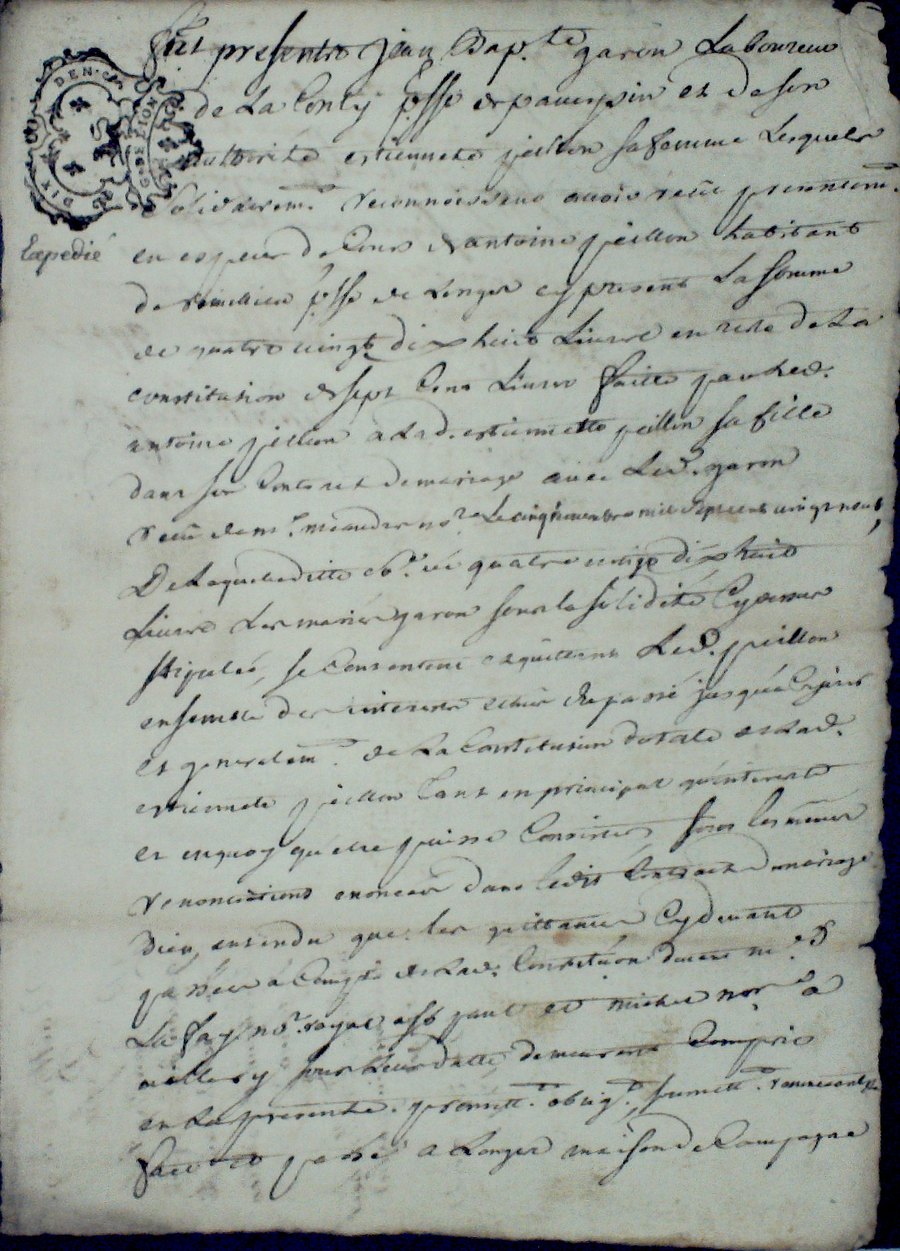 DEN. DIX
G. DE LION
Expedié
Fut presents jean Bap.te garon Laboureur
de La Conty psse de et de son
authorité estiennette peillon sa femme Lesquels
solidairem.t reconnoissent avoir receu presentem.t
en especes de Cours d'antoine peillon habitant
de psse de Longes cy present La somme
de quatre vingt dix huit Livres en reste de La
constitution de sept Cent Livres faitte par led.
antoine peillon a Lad. estiennette peillon sa fille
dans son Contract de mariage avec Led. garon
receu de m.e no.re Le cinq novembre mil sept cent vingt neuf,
De Laquelle ditte de quatre vingt dix huit
Livres Les mariés garon sous la solidité Cy dessus
stipulée, se Contentent et quittent Led. peillon
ensemble des interests du passé jusqu'a Ce jour
et generalem.t de La Constitution dotale de Lad.
estiennette peillon tant en principal qu'interests
et en quoy qu'elle puisse Consister, sous les mêmes
renonciations enoncées dans ledit Contract de mariage
Bien entendu que les quittances Cy devant
passées a Compte de Lad. Constitution devant m.es
La fay no.re royal et michel no.re a
millery sous leurs dattes demeurent Compris
en La presente. promett.t oblig.t, soumett.t renonceant
fait et passé a Longes maison de Campagne